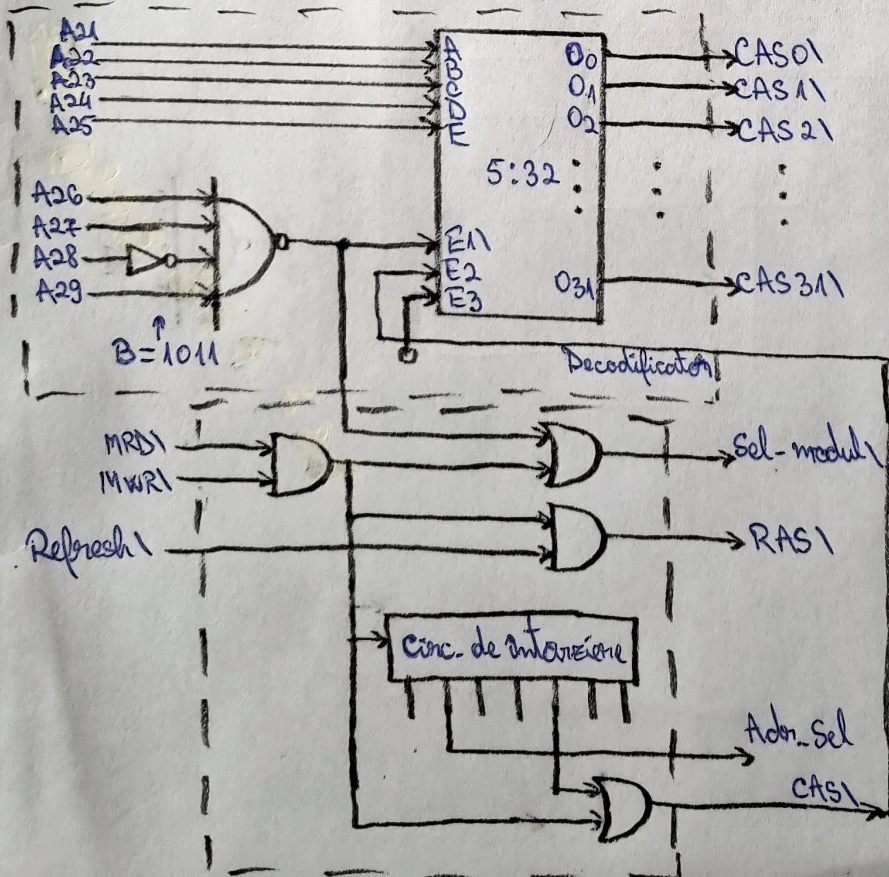 A21
A22
A23
A24
A25
A
B
C
D
E
O0
O1
O2
CAS0\
CAS1\
CAS2\
5:32
A26
A27
A28
A29
B=1011
E1\
E2
E3
O31
CAS31\
Decodificator
MRD\
MWR\
Sel-modul\
Refresh\
RAS\
Circ. de întârziere
Adr_Sel
CAS\